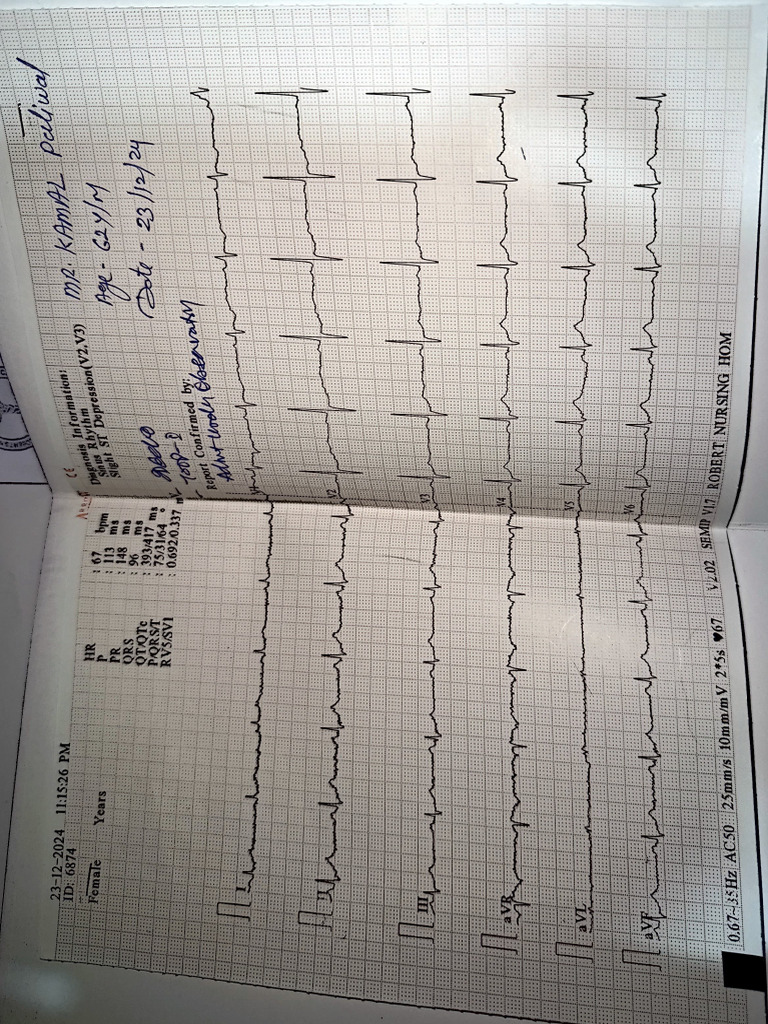 23-12-2024 11:15:26 PM
ID: 6874
Female Years
HR : 67 bpm
P : 113 ms
PR : 148 ms
QRS : 96 ms
QT/QTc : 393/417 ms
P/QRS/T : 75/31/64 °
RV5/SV1 : 0.692/0.337 mV
Diagnosis Information:
Sinus Rhythm
Slight ST Depression(V2,V3)
Report Confirmed by:
MR. KAMAL Paliwal
Age - 62Y/M
Date - 23/12/24
I
II
III
aVR
aVL
aVF
V1
V2
V3
V4
V5
V6
0.67~35Hz AC50 25mm/s 10mm/mV 2*5s ♥67 V2.02 SEMIP V1.7 ROBERT NURSING HOM